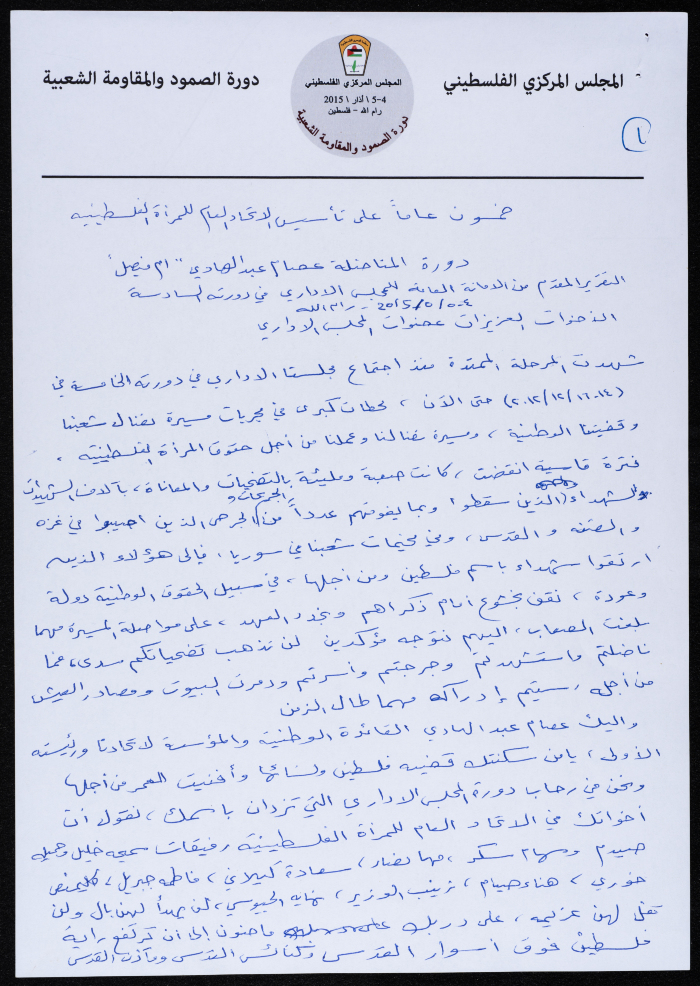 المجلس المركزي الفلسطيني
المجلس المركزي الفلسطيني
4-5 \ آذار \ 2015
رام الله - فلسطين
دورة الصمود والمقاومة الشعبية
دورة الصمود والمقاومة الشعبية
١
خمسون عاماً على تأسيس الاتحاد العام للمرأة الفلسطينية
دورة المناضلة عصام عبد الهادي "ام فيصل"
التقرير المقدم من الامانة العامة للمجلس الاداري في دورته السادسة
رام الله
الاخوات العزيزات عضوات المجلس الاداري
شهدت المرحلة الممتدة منذ اجتماع مجلسنا الاداري في دورته الخامسة في
(١٤-١٦/١٢/٢٠١٢) حتى الآن ، محطات كبرى في مجريات مسيرة نضال شعبنا
وقضيتنا الوطنية ، ومسيرة نضالنا وعملنا من أجل حقوق المرأة الفلسطينية .
فترة قاسية انقضت ، كانت صعبة ومليئة بالتضحيات والمعاناة ، بآلاف الشهيدات
والشهداء الذين سقطوا وبما يفوقهم عدداً من الجريحات و الجرحى الذين اصيبوا في غزه
والضفه والقدس ، وفي مخيمات شعبنا في سوريا ، فإلى هؤلاء الذين
ارتقوا شهداء باسم فلسطين ومن أجلها ، في سبيل الحقوق الوطنية دولة
وعودة ، نقف بخشوع أمام ذكراهم ونجدد العهد ، على مواصلة المسيرة مهما
بلغت الصعاب ، اليهم نتوجه مؤكدين لن تذهب تضحياتكم سدى ، فما
ناضلتم واستشهدتم وجرحتم وأسرتم ودمرت البيوت ومصادر العيش
من أجله ، سيتم إدراكه مهما طال الزمن
واليك عصام عبد الهادي القائدة الوطنية والمؤسسة لاتحادنا ورئيسته
الأولى ، يا من سكنتك قضية فلسطين ونسائها وأفنيت العمر من أجلها
ونحن في رحاب دورة المجلس الاداري التي تزدان باسمك ، نقول أن
أخواتك في الاتحاد العام للمرأة الفلسطينية رفيقات سميحه خليل وجميله
صيدم وسهام سكر ، مها نصار ، سعادة كيلاني ، فاطمه جبريل ،
خوري ، هناء صيام ، زينب الوزير ، نهايه الجيوسي ، لن يهدأ لهن بال ولن
تفل لهن عزيمه ، على دربك ماضون إلى أن ترتفع راية
فلسطين فوق أسوار القدس وكنائس القدس ومآذن القدس